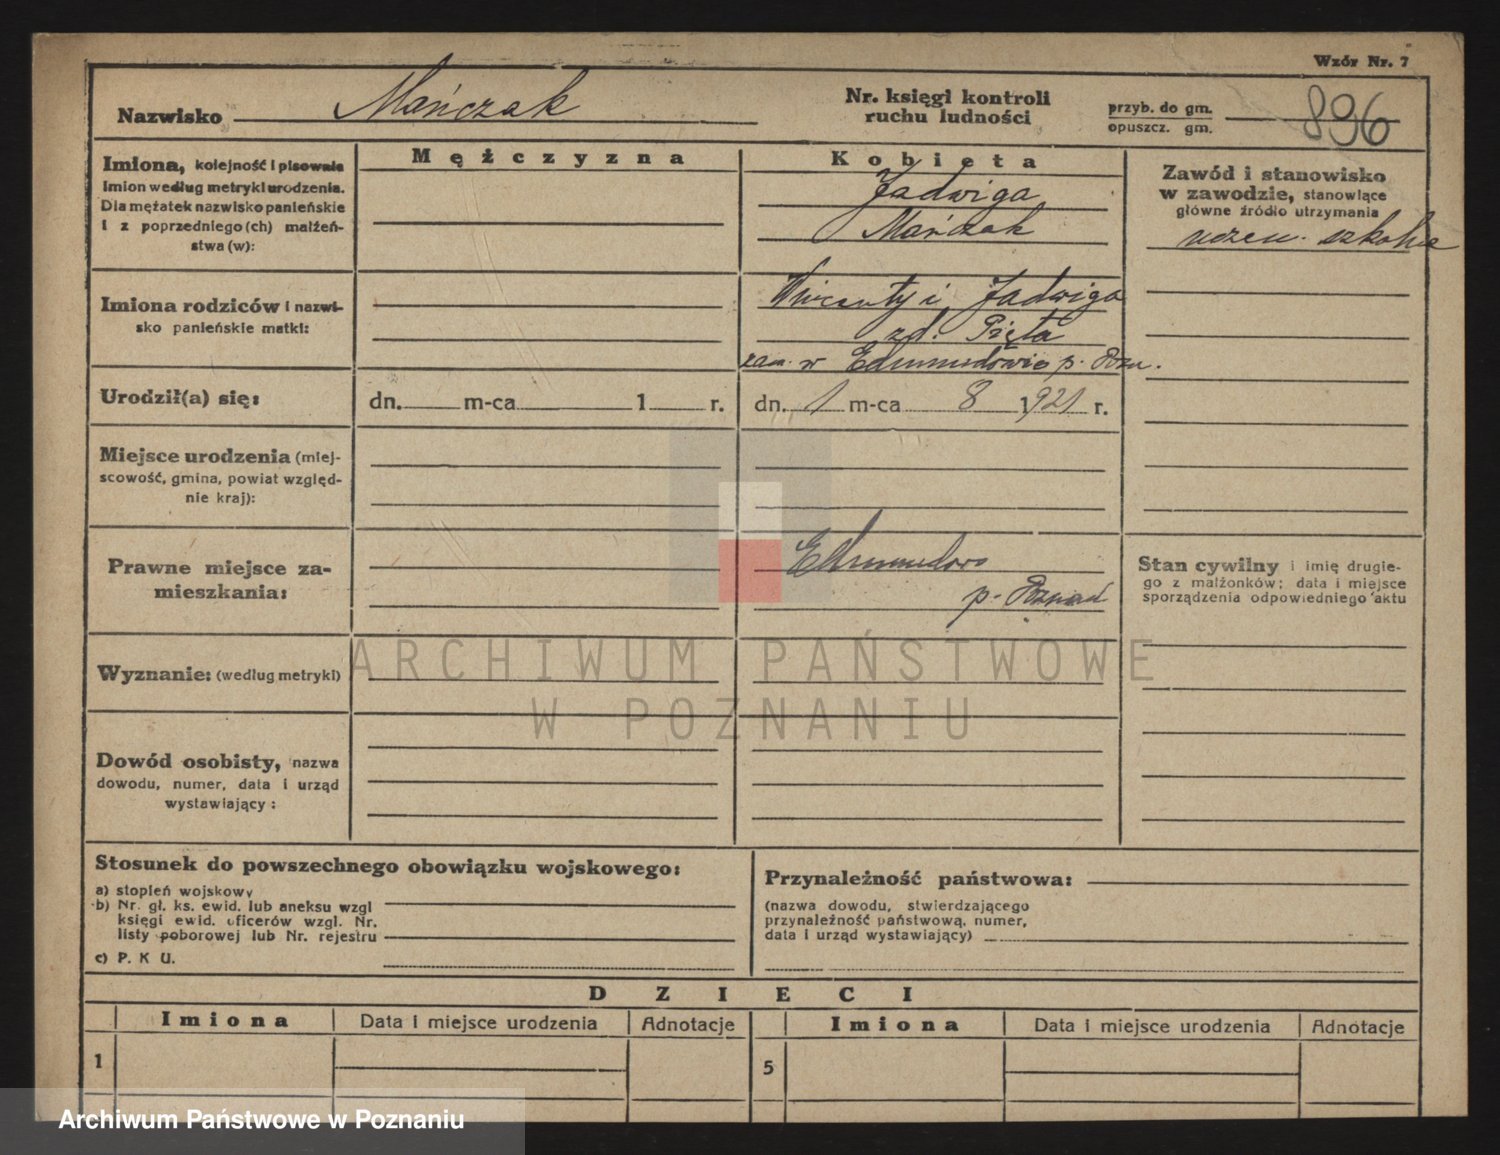 Wzór Nr. 7
Nazwisko Mańczak
Nr. księgi kontroli ruchu ludności
przyb. do gm.
opuszcz. gm.
896
Imiona, kolejność i pisownia
Imion według metryki urodzenia.
Dla mężatek nazwisko panieńskie
i z poprzedniego (ch) małżeń-
stwa (w):
Mężczyzna
Kobieta
Jadwiga
Mańczak
Zawód i stanowisko
w zawodzie, stanowiące
główne źródło utrzymania
uczen. szkolna
Imiona rodziców i nazwi-
sko panieńskie matki:
Wincenty i Jadwiga
zd. Pięta
zam. w Edmundowie p. Pozn.
Urodził(a) się:
dn. m-ca 1 r.
dn. 1 m-ca 8 1921 r.
Miejsce urodzenia (miej-
scowość, gmina, powiat względ-
nie kraj):
Prawne miejsce za-
mieszkania:
Edmundowo
p. Poznań
Stan cywilny i imię drugie-
go z małżonków; data i miejsce
sporządzenia odpowiedniego aktu
Wyznanie: (według metryki)
ARCHIWUM PAŃSTWOWE
W POZNANIU
Dowód osobisty, nazwa
dowodu, numer, data i urząd
wystawiający:
Stosunek do powszechnego obowiązku wojskowego:
a) stopień wojskowy
b) Nr. gł. ks. ewid. lub aneksu wzgl
księgi ewid. oficerów wzgl. Nr.
listy poborowej lub Nr. rejestru
c) P. K U.
Przynależność państwowa:
(nazwa dowodu, stwierdzającego
przynależność państwową, numer,
data i urząd wystawiający)
DZIECI
Imiona Data i miejsce urodzenia Adnotacje Imiona Data i miejsce urodzenia Adnotacje
1
5
Archiwum Państwowe w Poznaniu